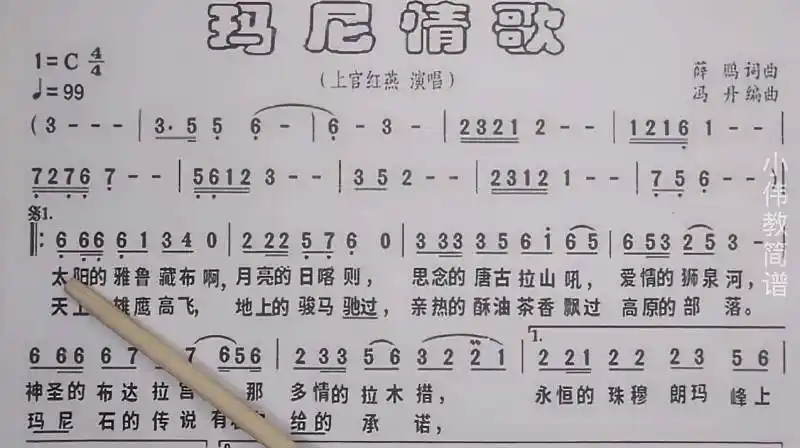 玛尼情歌
1=C 4/4
(上官红燕 演唱)
薛鹏 词曲
♩=99
冯丹 编曲
(3 - - | 3· 5 5 6 - | 6 · 3 - - | 2321 2 - - | 1216 1 - - |
7276 7 - - | 5612 3 - - | 3 5 2 - - | 2312 1 - - | 7 5 6 - - ) |
𝄋1.
‖: 6 66 6 1 34 0 | 2 22 5 7 6 0 | 3 33 35 6 i 65 | 6 53 2 5 3 - |
太阳的 雅鲁 藏布啊, 月亮的 日喀 则, 思念的 唐古 拉山 吼, 爱情的 狮泉 河,
天上 雄鹰 高飞, 地上的 骏马 驰过, 亲热的 酥油 茶香 飘过 高原的 部 落。
6 66 6 7 7 656 | 2 33 3 5 6 3 2 21 | 1. 2 21 2 2 5 7 1 2
神圣的 布达 拉宫 那 多情的 拉木 措, 永恒的 珠穆 朗玛 峰上
玛尼 石的 传说 有 给的 承 诺,
小伟教简谱